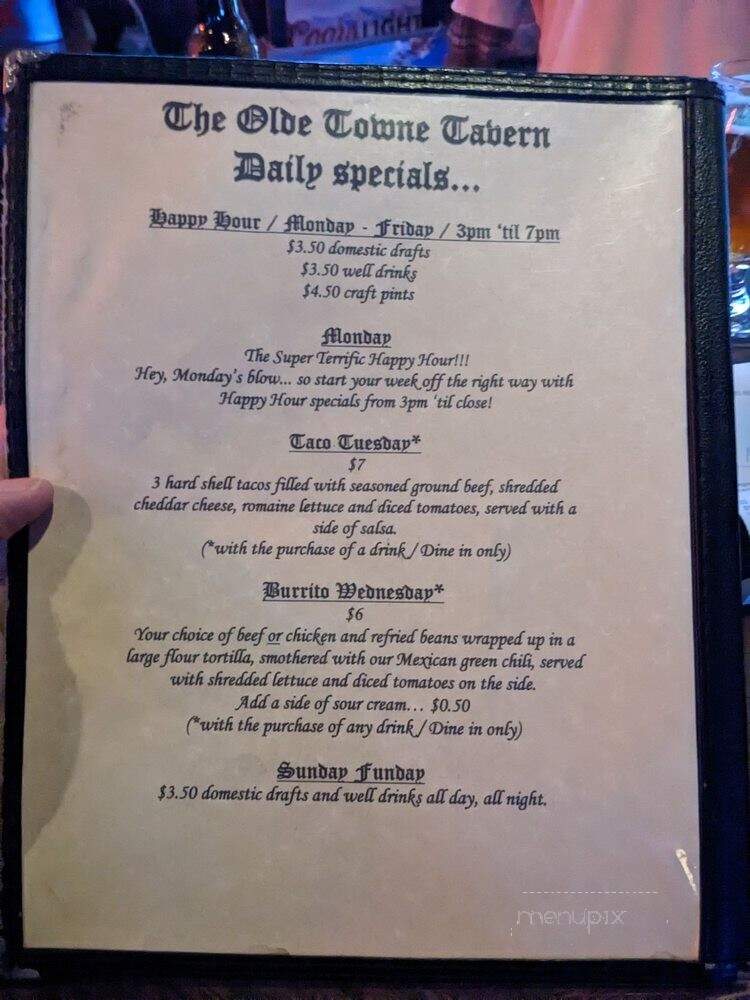 Coors LIGHT
The Olde Towne Tavern
Daily specials...
Happy Hour / Monday - Friday / 3pm 'til 7pm
$3.50 domestic drafts
$3.50 well drinks
$4.50 craft pints
Monday
The Super Terrific Happy Hour!!!
Hey, Monday's blow... so start your week off the right way with
Happy Hour specials from 3pm 'til close!
Taco Tuesday*
$7
3 hard shell tacos filled with seasoned ground beef, shredded
cheddar cheese, romaine lettuce and diced tomatoes, served with a
side of salsa.
(*with the purchase of a drink / Dine in only)
Burrito Wednesday*
$6
Your choice of beef or chicken and refried beans wrapped up in a
large flour tortilla, smothered with our Mexican green chili, served
with shredded lettuce and diced tomatoes on the side.
Add a side of sour cream... $0.50
(*with the purchase of any drink / Dine in only)
Sunday Funday
$3.50 domestic drafts and well drinks all day, all night.
menupix